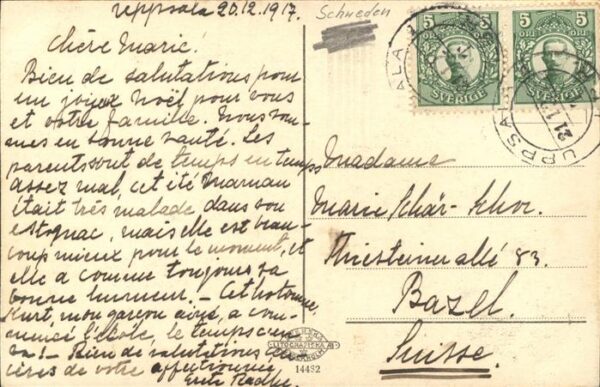 Uppsala 20.12.1917.
Schweden
Chère Marie.
Bien de salutations pour
un joyeux Noël pour vous
et votre famille. Nous som-
mes en bonne santé. Les
parents sont de temps en temps
assez mal, cet été Maman
était très malade dans son
estognac, mais elle est beau-
coup mieux pour le moment, et
elle a comme toujours sa
bonne humeur. – Cet automne
Kurt, mon garçon a commencé l'école, le temps
va! – Bien de salutations
de votre affectionnée
5 5
ÖRE ÖRE
SVERIGE
UPPSALA
Madame
Marie Schär-
Thiersteinerallé 83.
Bazel.
Suisse.
14432